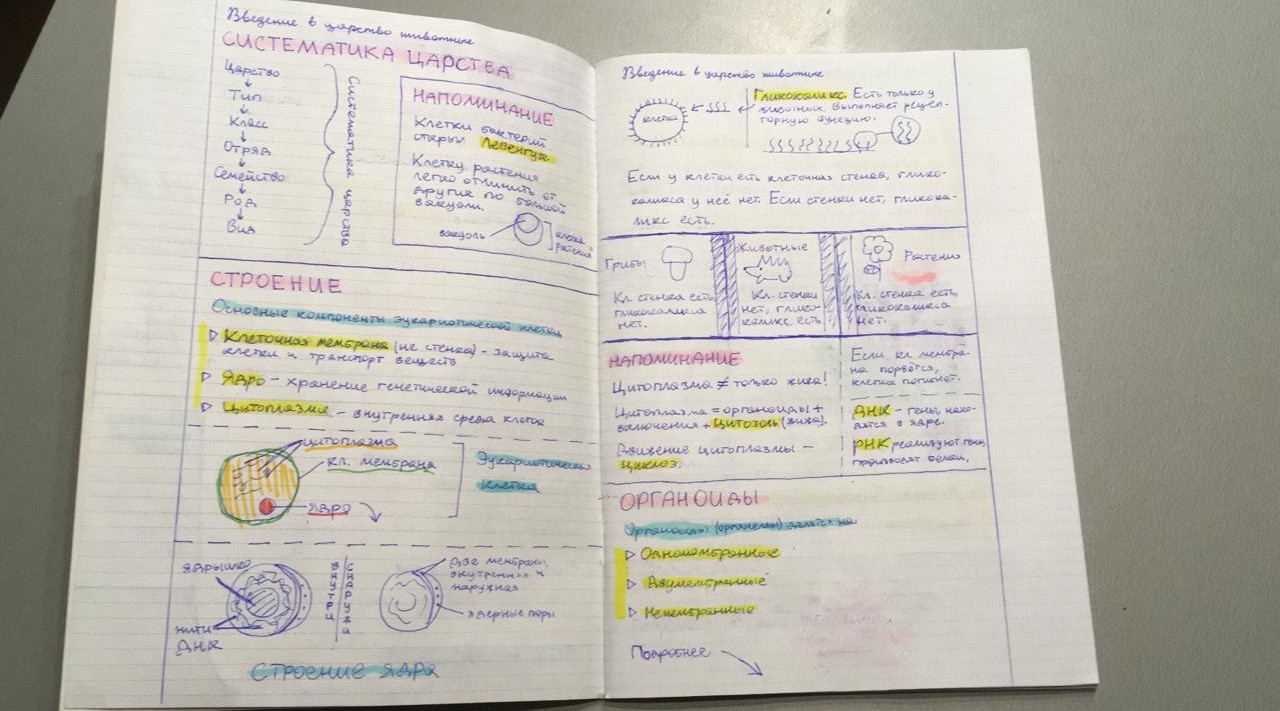 Введение в царство животные
СИСТЕМАТИКА ЦАРСТВА
Царство
Тип
Класс
Отряд
Семейство
Род
Вид
Систематика царства
НАПОМИНАНИЕ
Клетки бактерий
открыл Левенгук.
Клетку растения
легко отличить от
других по большой
вакуоли.
вакуоль
клетка
растения
СТРОЕНИЕ
Основные компоненты эукариотической клетки
Клеточная мембрана (не стенка) - защита
клетки и транспорт веществ
Ядро - хранение генетической информации
Цитоплазма - внутренняя среда клеток
цитоплазма
кл. мембрана
ядро
Эукариотическая
клетка
ядрышко
нити
ДНК
ВНУТРИ
СНАРУЖИ
Две мембраны,
внутренняя и
наружная
ядерные поры
Строение ядра
Введение в царство животные
клетка
Гликокаликс. Есть только у
животных. Выполняет рецеп-
торную функцию.
Если у клетки есть клеточная стенка, глико-
каликса у неё нет. Если стенки нет, гликока-
ликс есть.
Грибы
Кл. стенка есть,
гликокаликса
нет.
Животные
Кл. стенки
нет, глико-
каликс есть
Растения
Кл. стенка есть,
гликокаликса
нет.
НАПОМИНАНИЕ
Цитоплазма ≠ только жижа!
Цитоплазма = органоиды +
включения + цитозоль (жижа).
Движение цитоплазмы -
циклоз.
Если кл. мембра-
на порвётся,
клетка погибнет.
ДНК - гены, нахо-
дятся в ядре.
РНК реализуют гены,
производят белки.
ОРГАНОИДЫ
Органоиды (органеллы) делятся на:
Одномембранные
Двумембранные
Немембранные
Подробнее